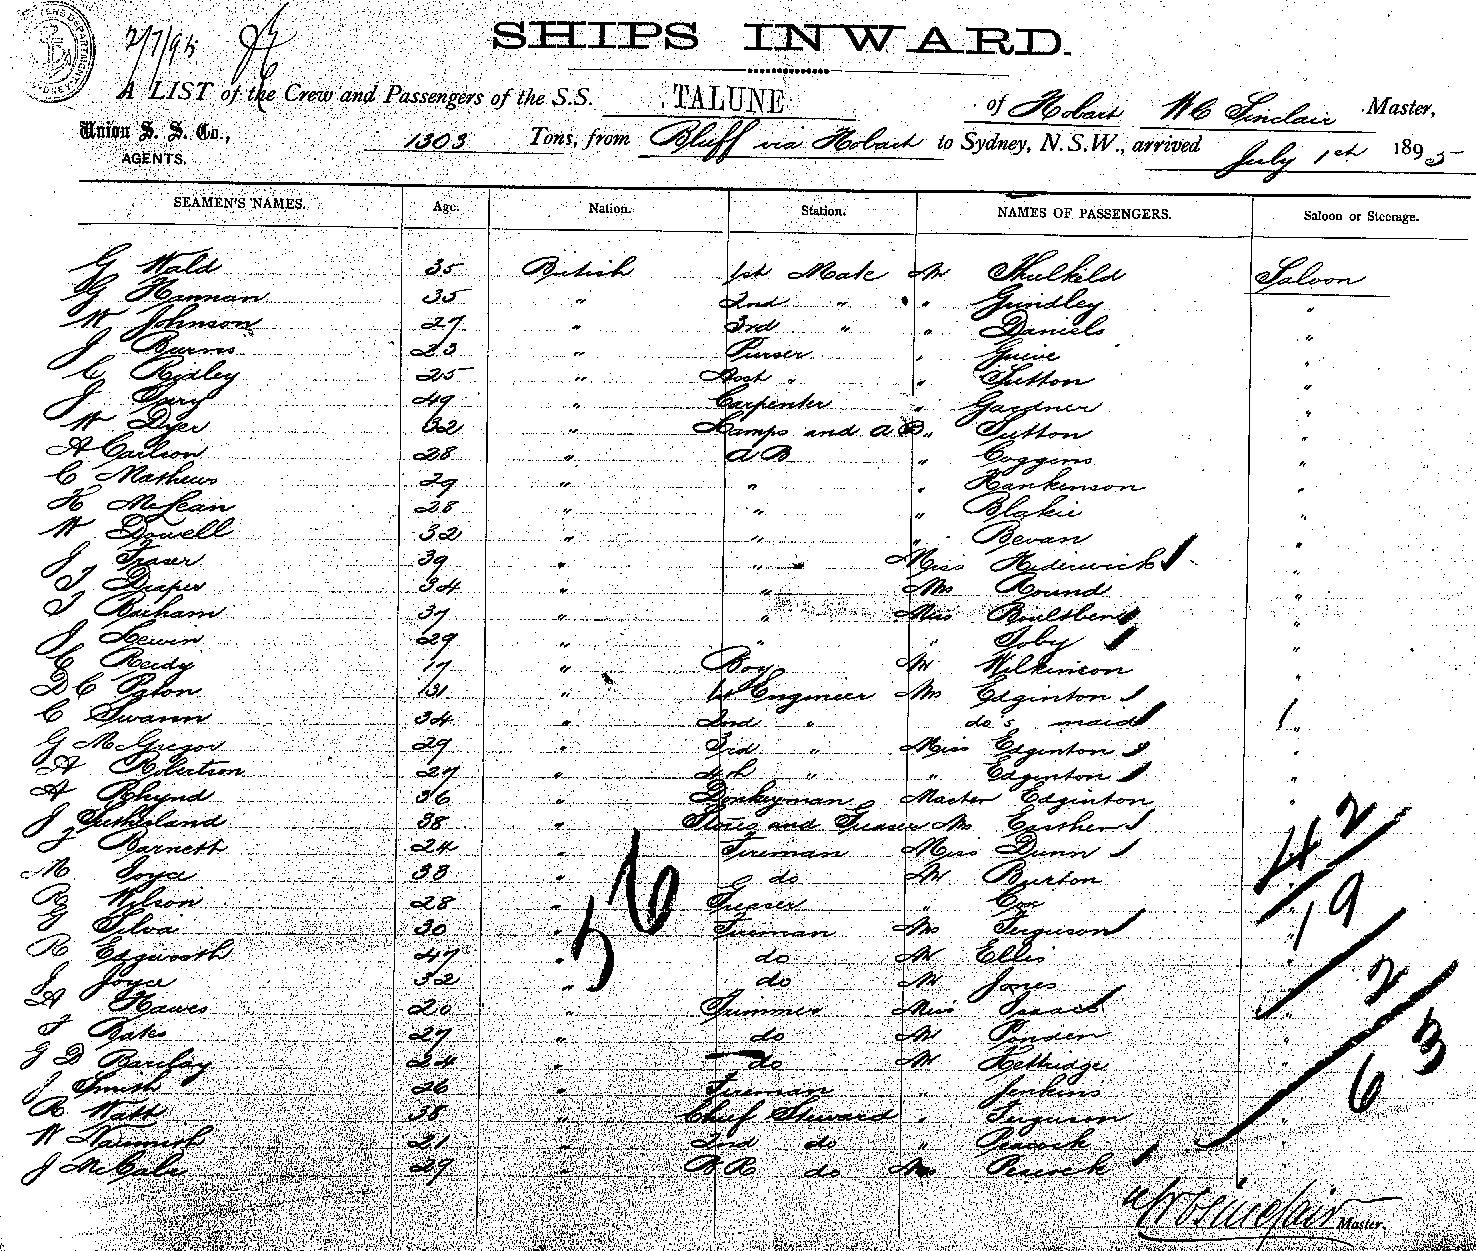 2/7/95
SHIPS INWARD.
A LIST of the Crew and Passengers of the S.S. TALUNE of Hobart W C Sinclair Master,
Union S. S. Co., AGENTS. 1303 Tons, from Bluff via Hobart to Sydney, N.S.W., arrived July 1st 1895
SEAMEN'S NAMES. Age. Nation. Station. NAMES OF PASSENGERS. Saloon or Steerage.
G Wald 35 British 1st Mate Mr Thulkeld Saloon
G Hannan 35 " 2nd " " Gundley "
W Johnson 27 " 3rd " " Daniels "
J Burns 23 " Purser " Grieve "
C Ridley 25 " Asst " " Sutton "
J Pary 49 " Carpenter " Gardner "
W Dyer 32 " Lamps and A B " Sutton "
A Carlson 28 " A B " Coggins "
C Mathews 29 " " " Hankinson "
H McLean 28 " " " Blakie "
W Dowell 32 " " " Bevan "
J Fraser 39 " " Miss Hederwick "
T Draper 34 " " Mrs Round "
T Burham 37 " " Miss Boultbee "
J Lewin 29 " " " Toby "
C Reidy 17 " Boy Mr Wilkinson "
D C 31 " 1st Engineer Mrs Edginton "
C Swann 34 " 2nd " do's maid "
G McGregor 29 " 3rd " Miss Edginton "
A Robertson 27 " 4th " " Edginton "
A Rhynd 36 " Donkeyman Master Edginton "
J Sutherland 38 " Stores and Greaser Mrs
J Barnett 24 " Fireman Miss Dunn
M Joyce 33 " do Mr Burton
R Wilson 28 " Greaser " Cox
G Silva 30 " Fireman Mrs Ferguson
R Edgworth 47 " do Mr Ellis
J Joyce 32 " do Mr Jones
A Hawes 20 " Trimmer Miss Isaacs
F Bates 27 " do Mr Ponder
G D Barclay 24 " do Mr Kettridge
J Smith 26 " Fireman " Jenkins
R Watt 38 " Chief Steward " Ferguson
W 21 " 2nd do "
J McCale 29 " do Mrs
56
42
19
2
63
W C Sinclair Master.